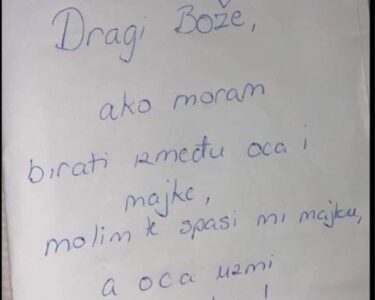 Dragi Bože,
ako moram
birati između oca i
majke,
molim te spasi mi majku,
a oca uzmi